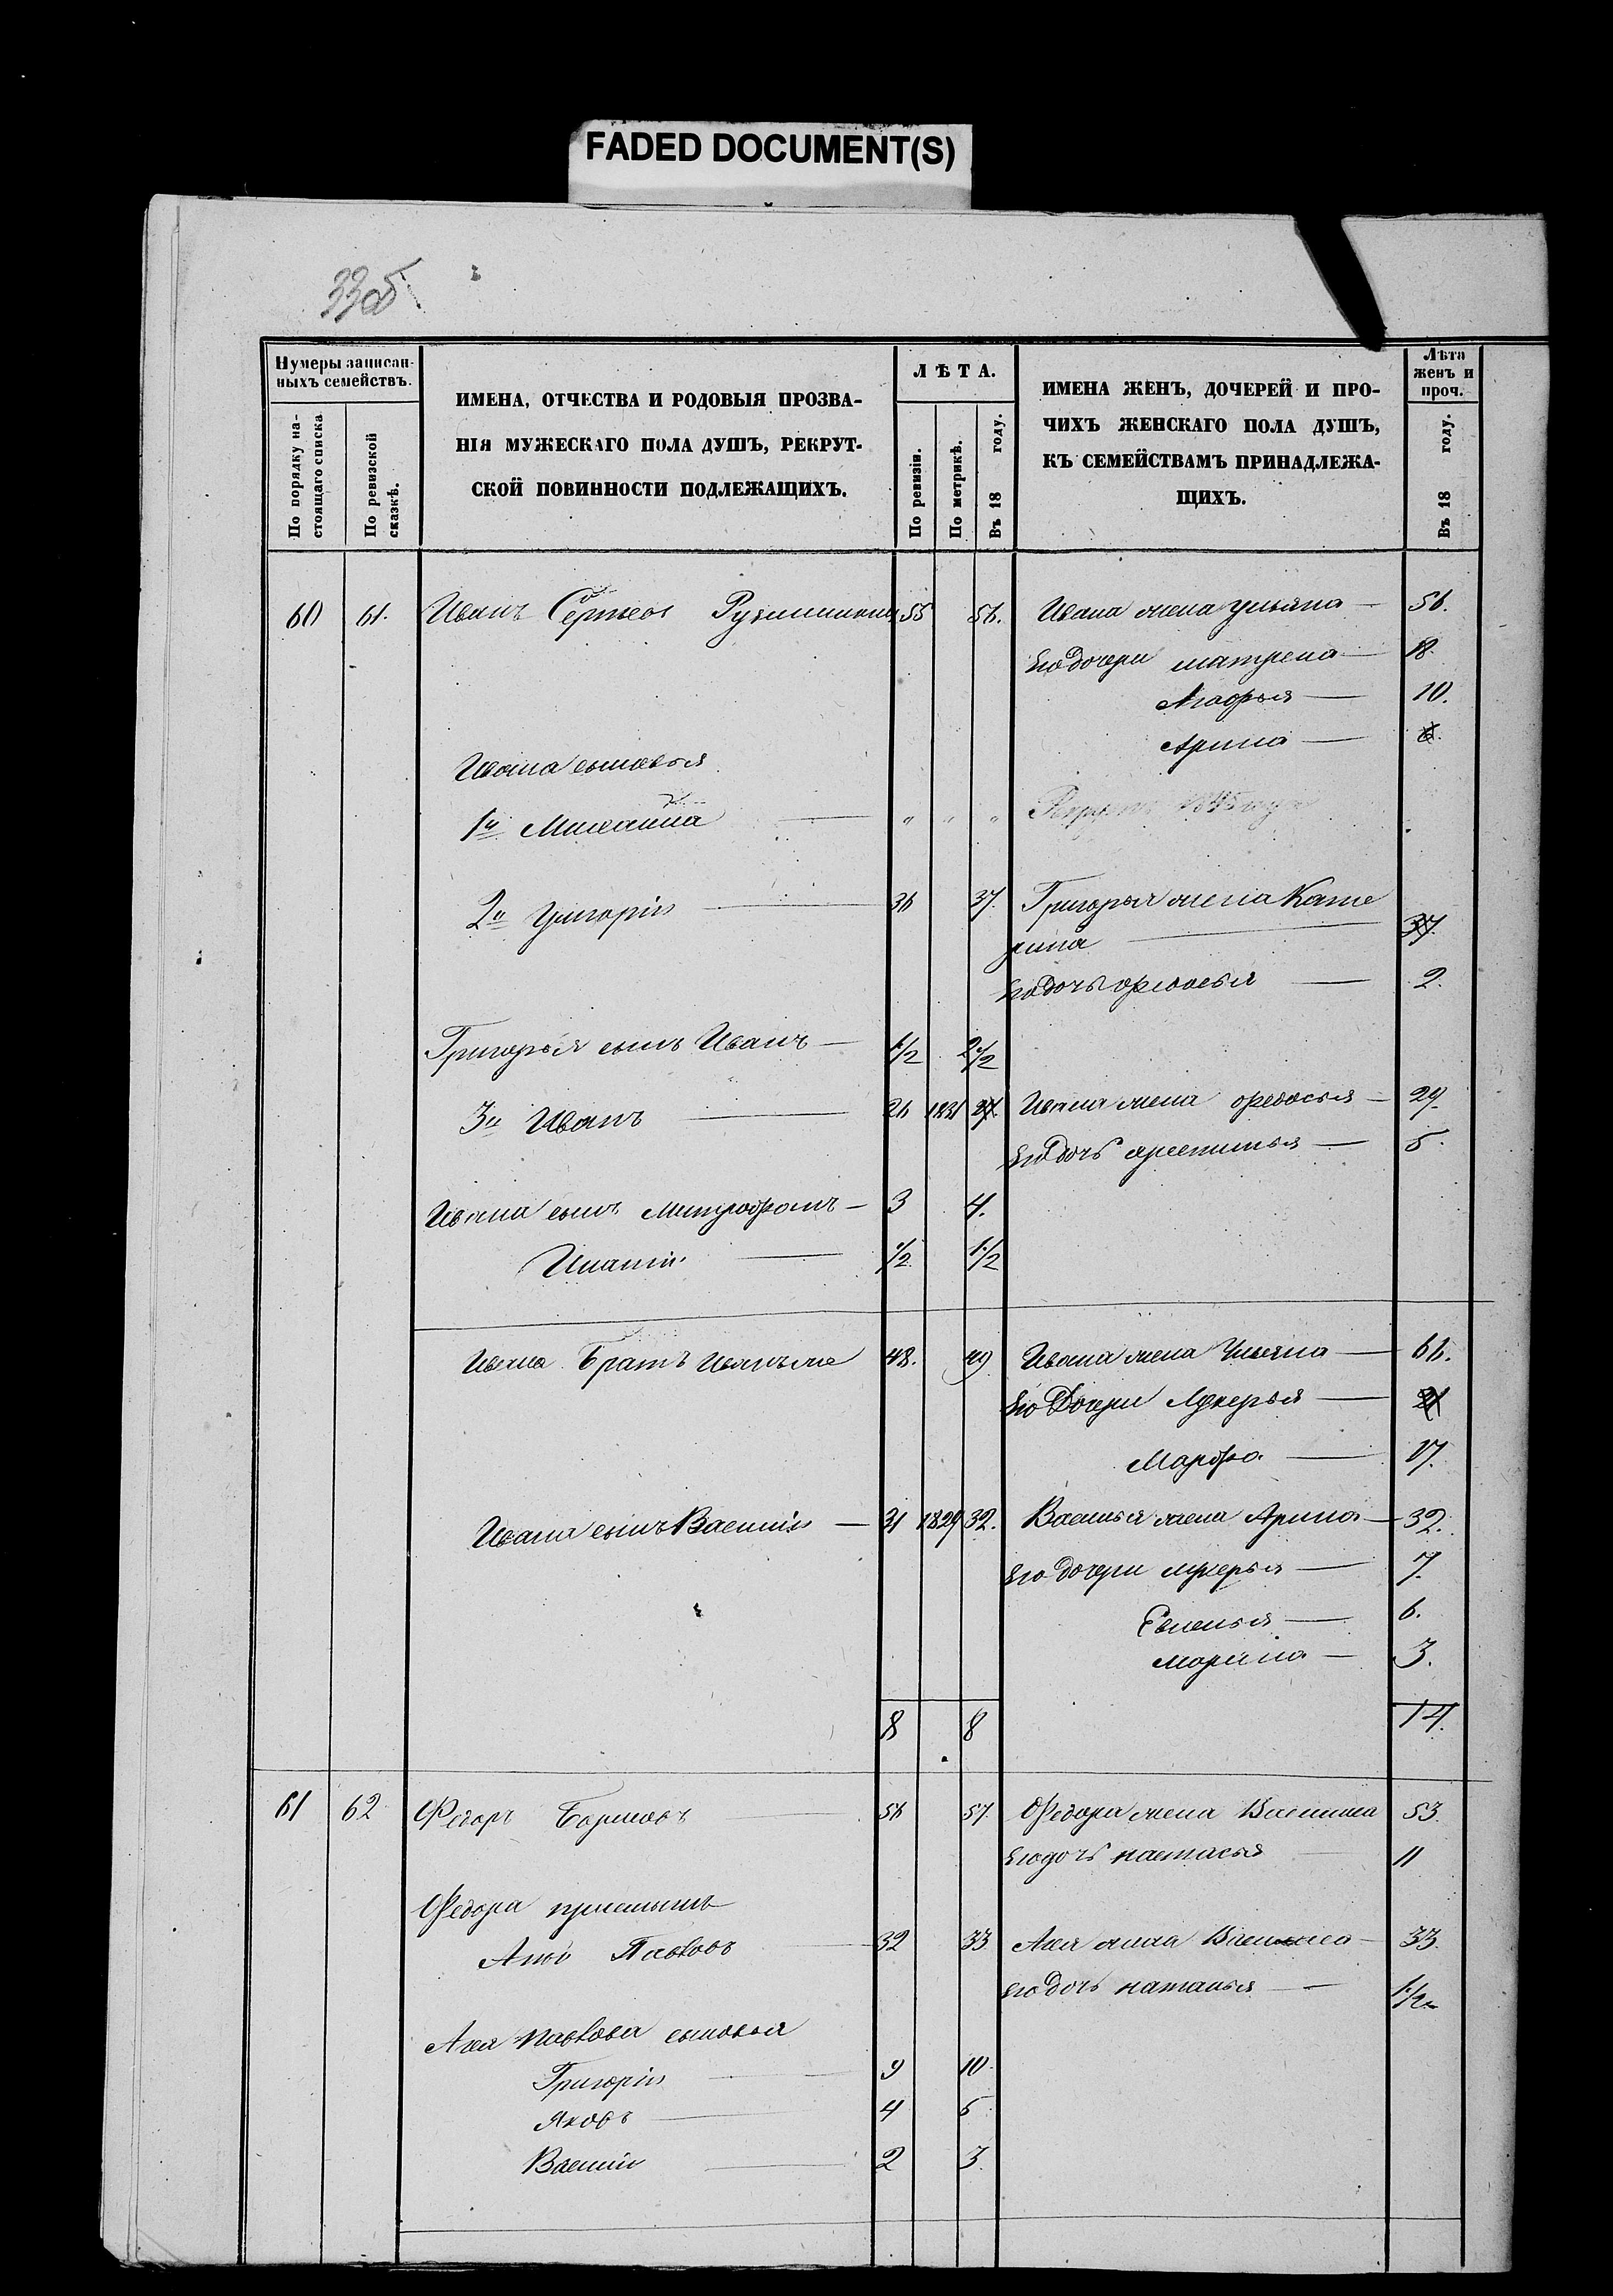 FADED DOCUMENT(S)
33об
Нумеры записан-
ныхъ семействъ.
По порядку на-
стоящаго списка
По ревизской
сказкѣ.
ИМЕНА, ОТЧЕСТВА И РОДОВЫЯ ПРОЗВА-
НІЯ МУЖЕСКАГО ПОЛА ДУШЪ, РЕКРУТ-
СКОЙ ПОВИННОСТИ ПОДЛЕЖАЩИХЪ.
ЛѢТА.
По ревизіи.
По метрикѣ.
Въ 18 году.
ИМЕНА ЖЕНЪ, ДОЧЕРЕЙ И ПРО-
ЧИХЪ ЖЕНСКАГО ПОЛА ДУШЪ,
КЪ СЕМЕЙСТВАМЪ ПРИНАДЛЕЖА-
ЩИХЪ.
Лѣта
женъ и
проч.
Въ 18 году.
60 61. Иванъ Сергѣевъ 55 56. Ивана жена Ульяна — 56.
Его дочери матрена — 18.
Марья — 10.
Арина — 6.
Ивана сыновья
1й Михаила — " " "
2й Григорій — 36 37. Григорья жена Кате
рина — 37.
Его дочь — 2.
Григорья сынъ Иванъ — 1 1/2 2 1/2
3й Иванъ — 26 1831 27. Ивана жена федосья — 29.
Его дочь — 5.
Ивана сынъ Митрофанъ — 3 4.
Игнатій — 1/2 1 1/2
Ивана Братъ Иванъ же 48. 49 Ивана жена Ульяна — 66.
Его Дочери Лукерья — 21
Марфа — 17.
Ивана сынъ Василій — 31 1829 32. Василья жена Арина — 32.
Его дочери лукерья — 7.
Евгенья — 6.
Марина — 3.
8 8 14.
61 62 Федоръ 56 57. Федора жена Василиса 53.
Его дочь настасья 11
Федора приемышъ
Павловъ 32 33 жена Василиса — 33.
Его дочь наталья — 1 1/2
Павлова сыновья
Григорій — 9 10.
Яковъ — 4 5
Василій — 2 3.